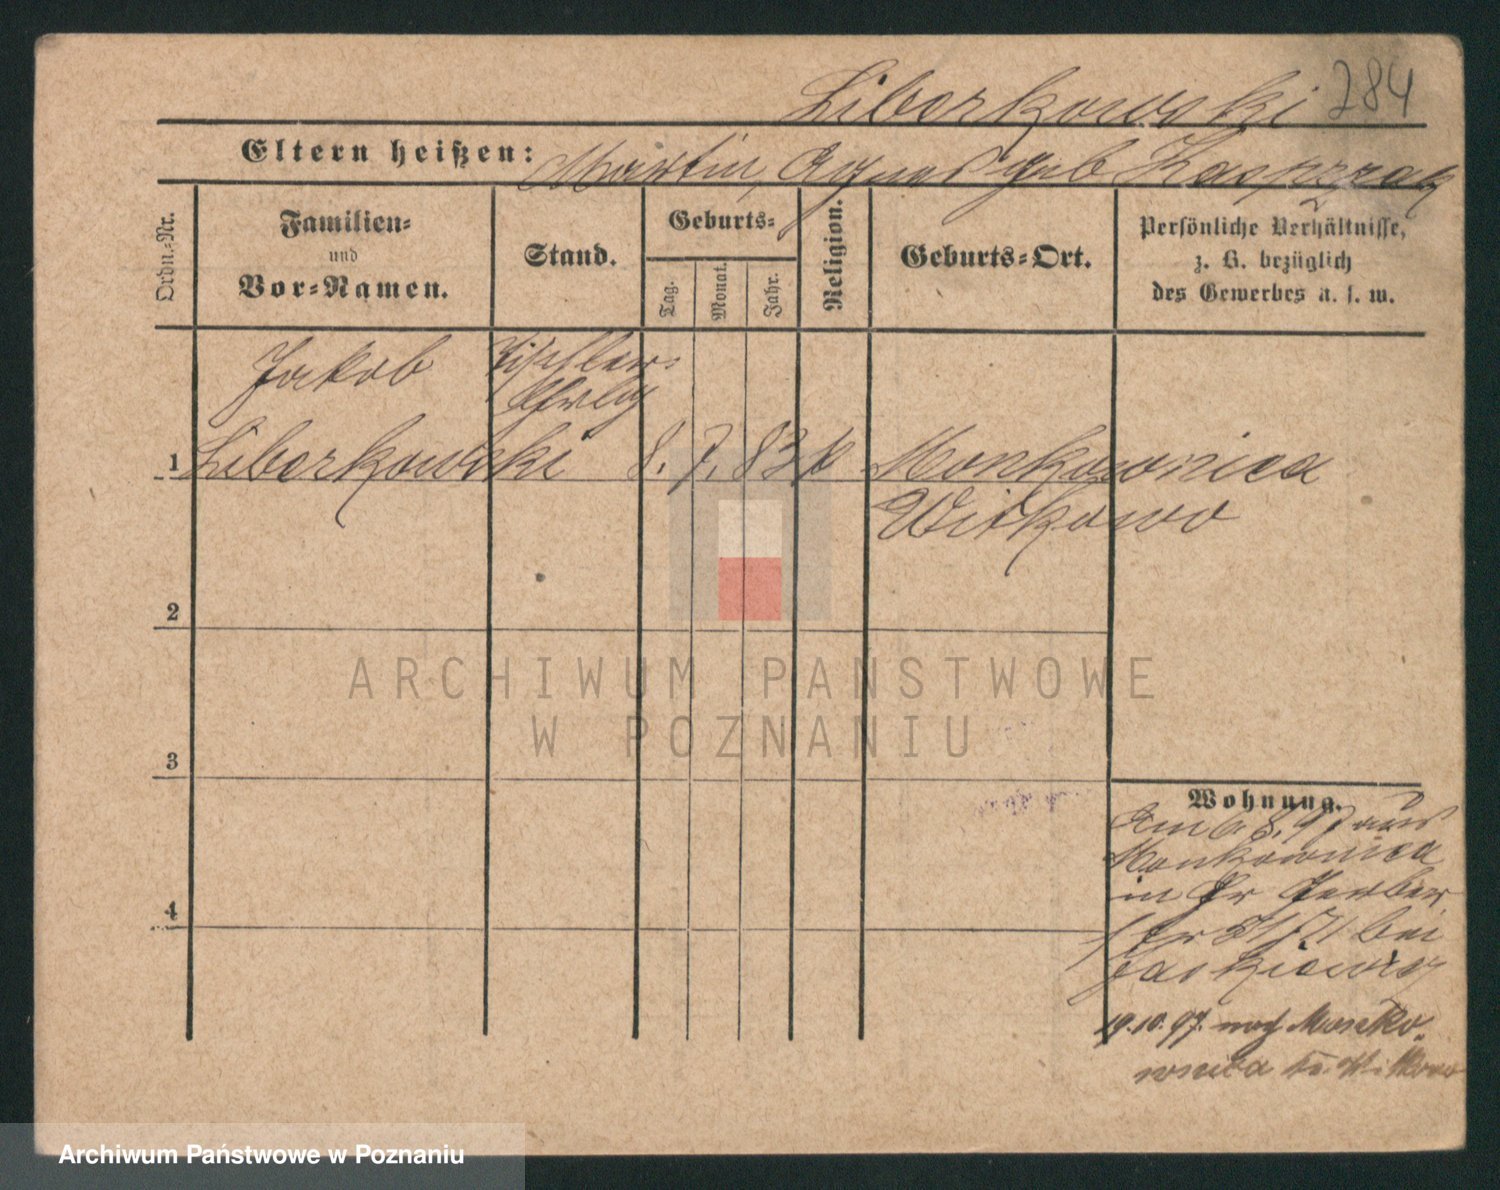 Liborkowski 284
Eltern heißen: Martin, Agnes geb Kasprzak
Ordn.=Nr.
Familien=
und
Vor=Namen.
Stand.
Geburts=
Tag.
Monat.
Jahr.
Religion.
Geburts=Ort.
Persönliche Verhältnisse,
z. B. bezüglich
des Gewerbes u. s. w.
Jakob Tischler=
1 Liborkowski 8. 7. 83 k Monkownica
Witkowo
2
3
4
Wohnung.
Am 6. 8. 97 aus
Monkownica
in Gr Gerber
Str bei
19.10.97. nach
Witkowo
ARCHIWUM PAŃSTWOWE
W POZNANIU
Archiwum Państwowe w Poznaniu